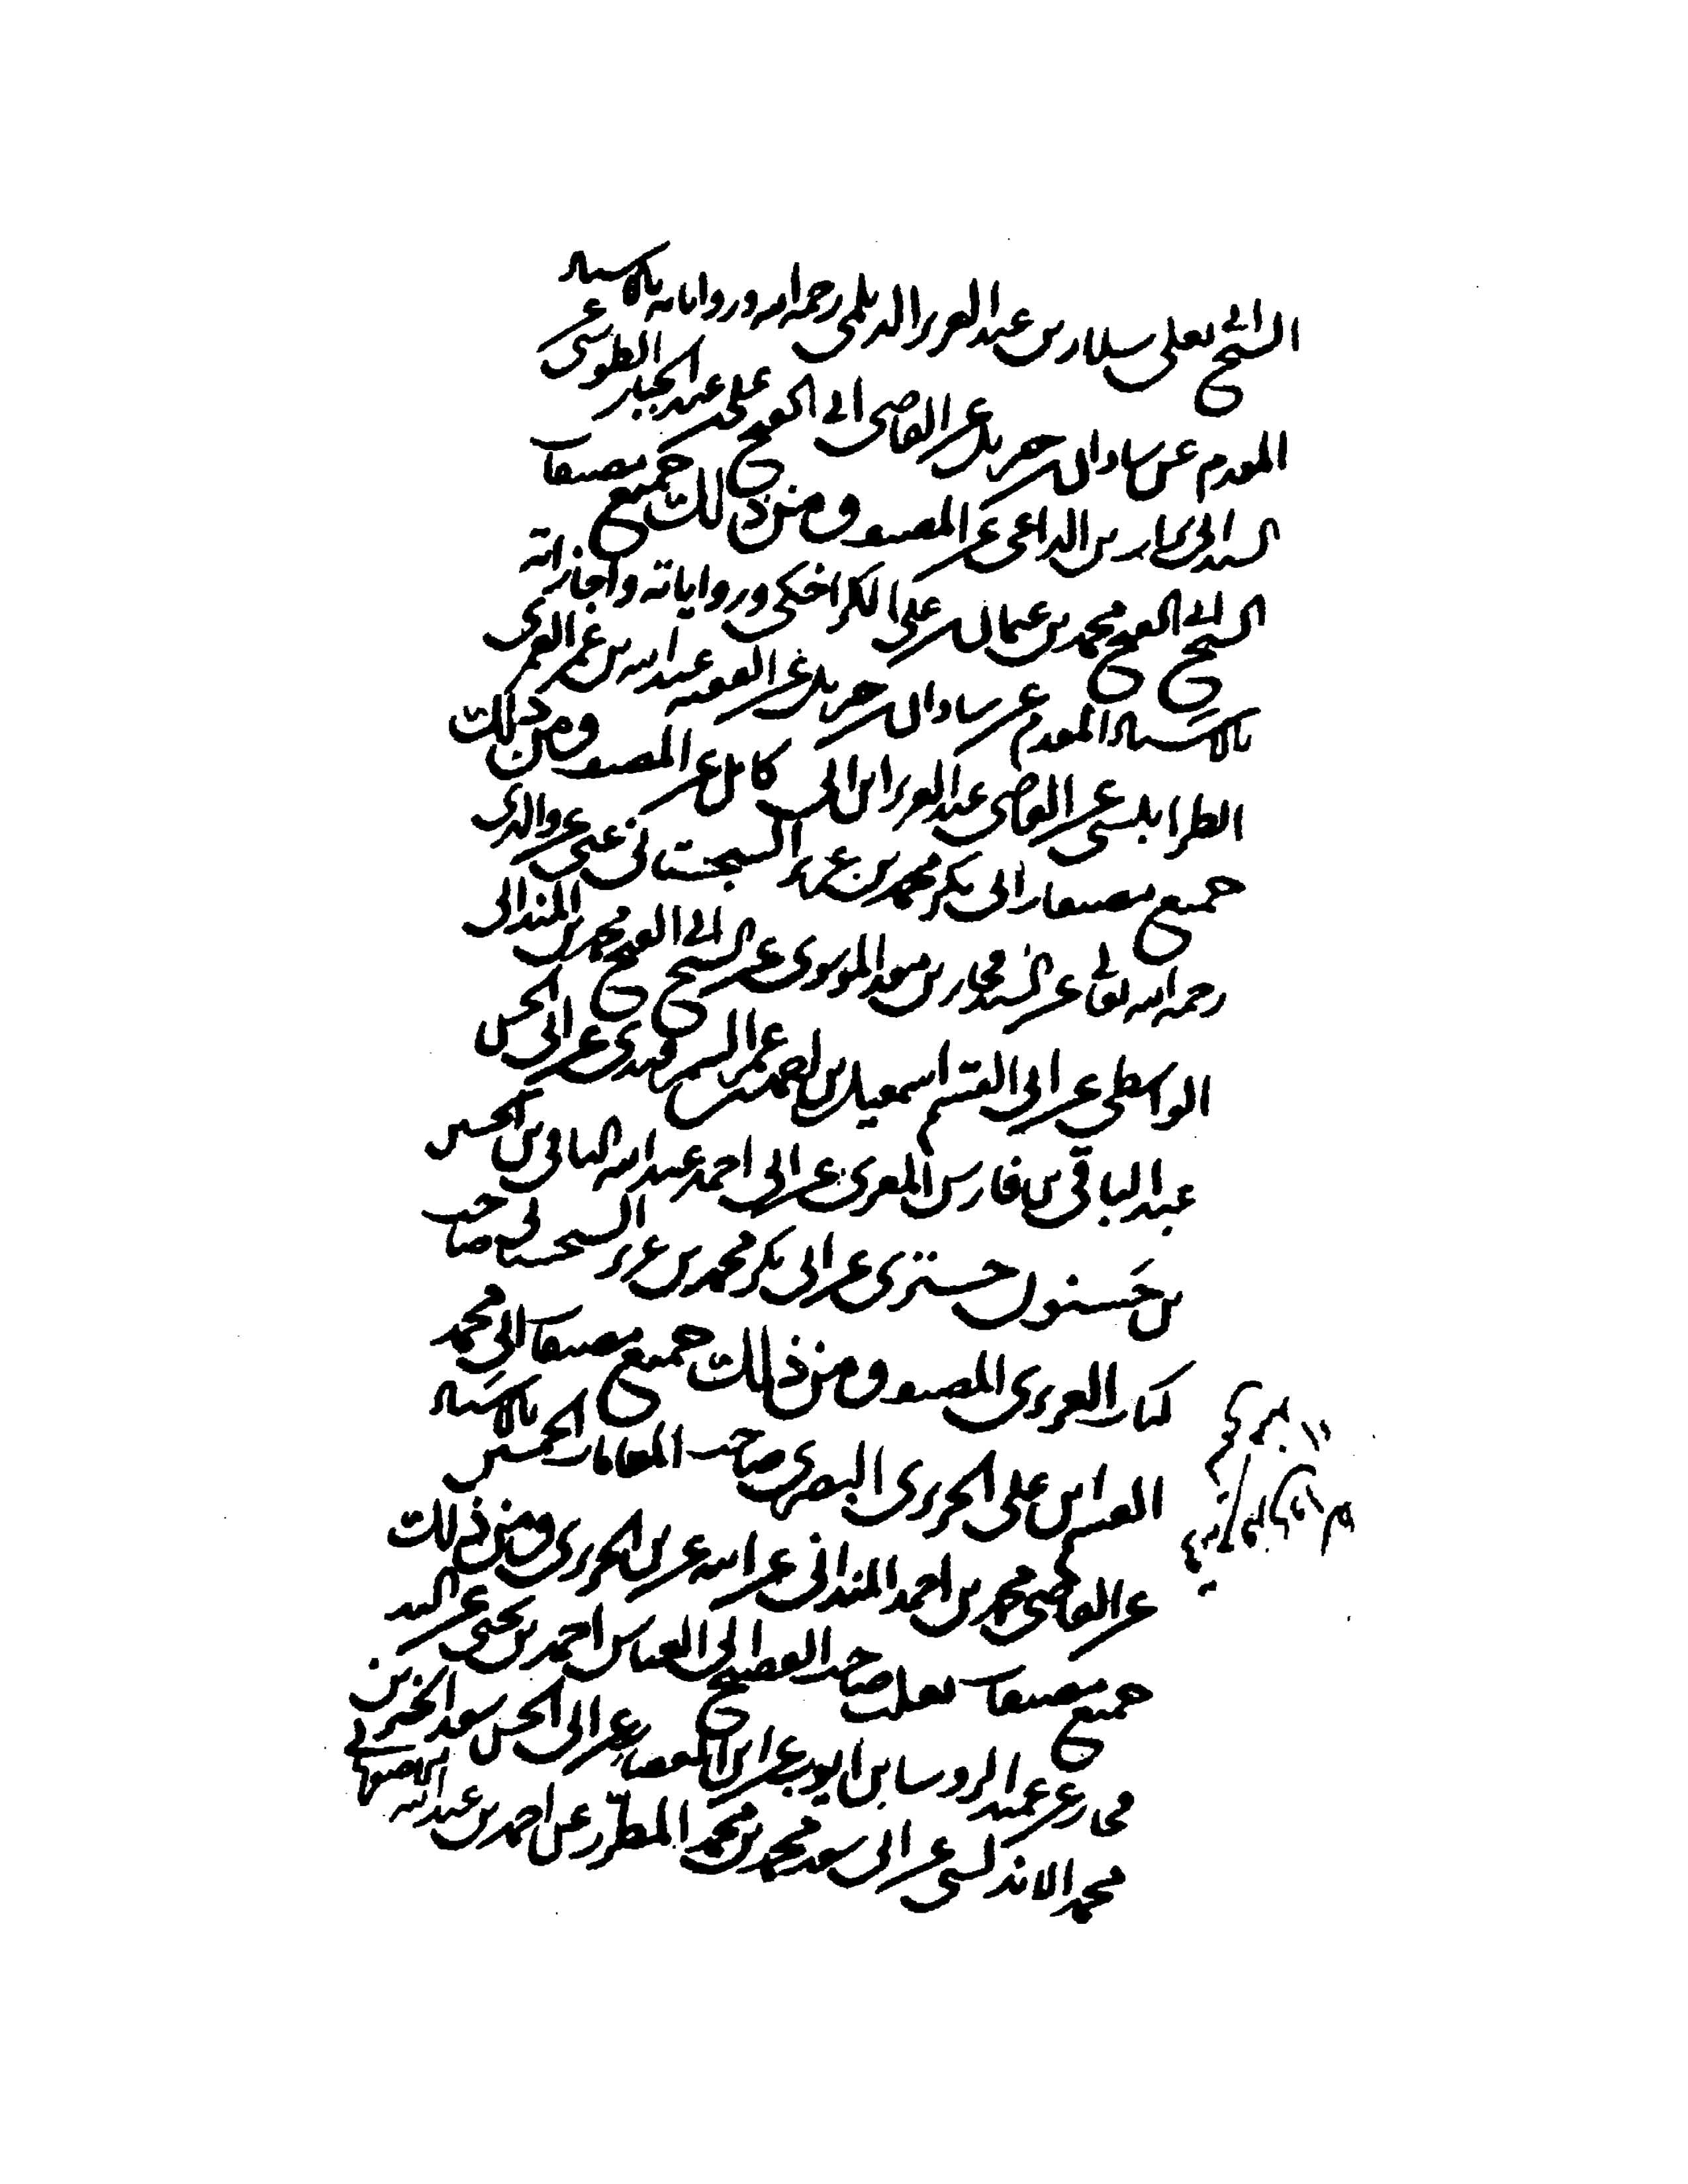 الشيخ ابي يعلى سلار بن عبد العزيز الديلمي رحمه الله ورواياته بالاسناد
المقدم عن شاذان بن جبريل عن القاضي ابي الفتح علي بن عبد الجبار الطوسي عن
السيد ابي تراب بن الداعي عن المصنف ومن ذلك جميع مصنفات
الشيخ ابي الفتح محمد بن عثمان بن علي الكراجكي ورواياته واجازاته
بالاسناد المقدم عن شاذان بن جبريل عن الفقيه عبد الله بن عمر العمري
الطرابلسي عن القاضي عبد العزيز ابن ابي كامل عن المصنف ومن ذلك
جميع مصنفات ابي بكر محمد بن عزيز السجستاني عني عن والدي
رحمه الله تعالى عن السيد فخار بن معد الموسوي عن الشيخ ابي الفتح محمد بن المندائي
الواسطي عن ابي القسم اسمعيل بن احمد بن عمر السمرقندي عن ابي الحسن
عبد الباقي بن فارس المقرئ عن ابي احمد عبد الله الباقي بن الحسين
بن حسنون حستري عن ابي بكر محمد بن عزيز السجستاني صاحب
كتاب العزيزي المصنف ومن ذلك جميع مصنفات ابي محمد
القسم ابن علي الحريري البصري صاحب المقامات الخمسين بالاسناد
عن القاضي محمد بن احمد المندائي عن ابيه عن الحريري ومن ذلك
جميع مصنفات ثعلب صاحب الفصيح ابي العباس احمد بن يحيى عن السيد
فخار عن عميد الروسا بن ايوب عن ابن العصار عن ابي الحسن سعد الخير بن
محمد الاندلسي عن ابي سعد محمد بن محمد المطرز عن احمد بن عبد الله الاصفهاني